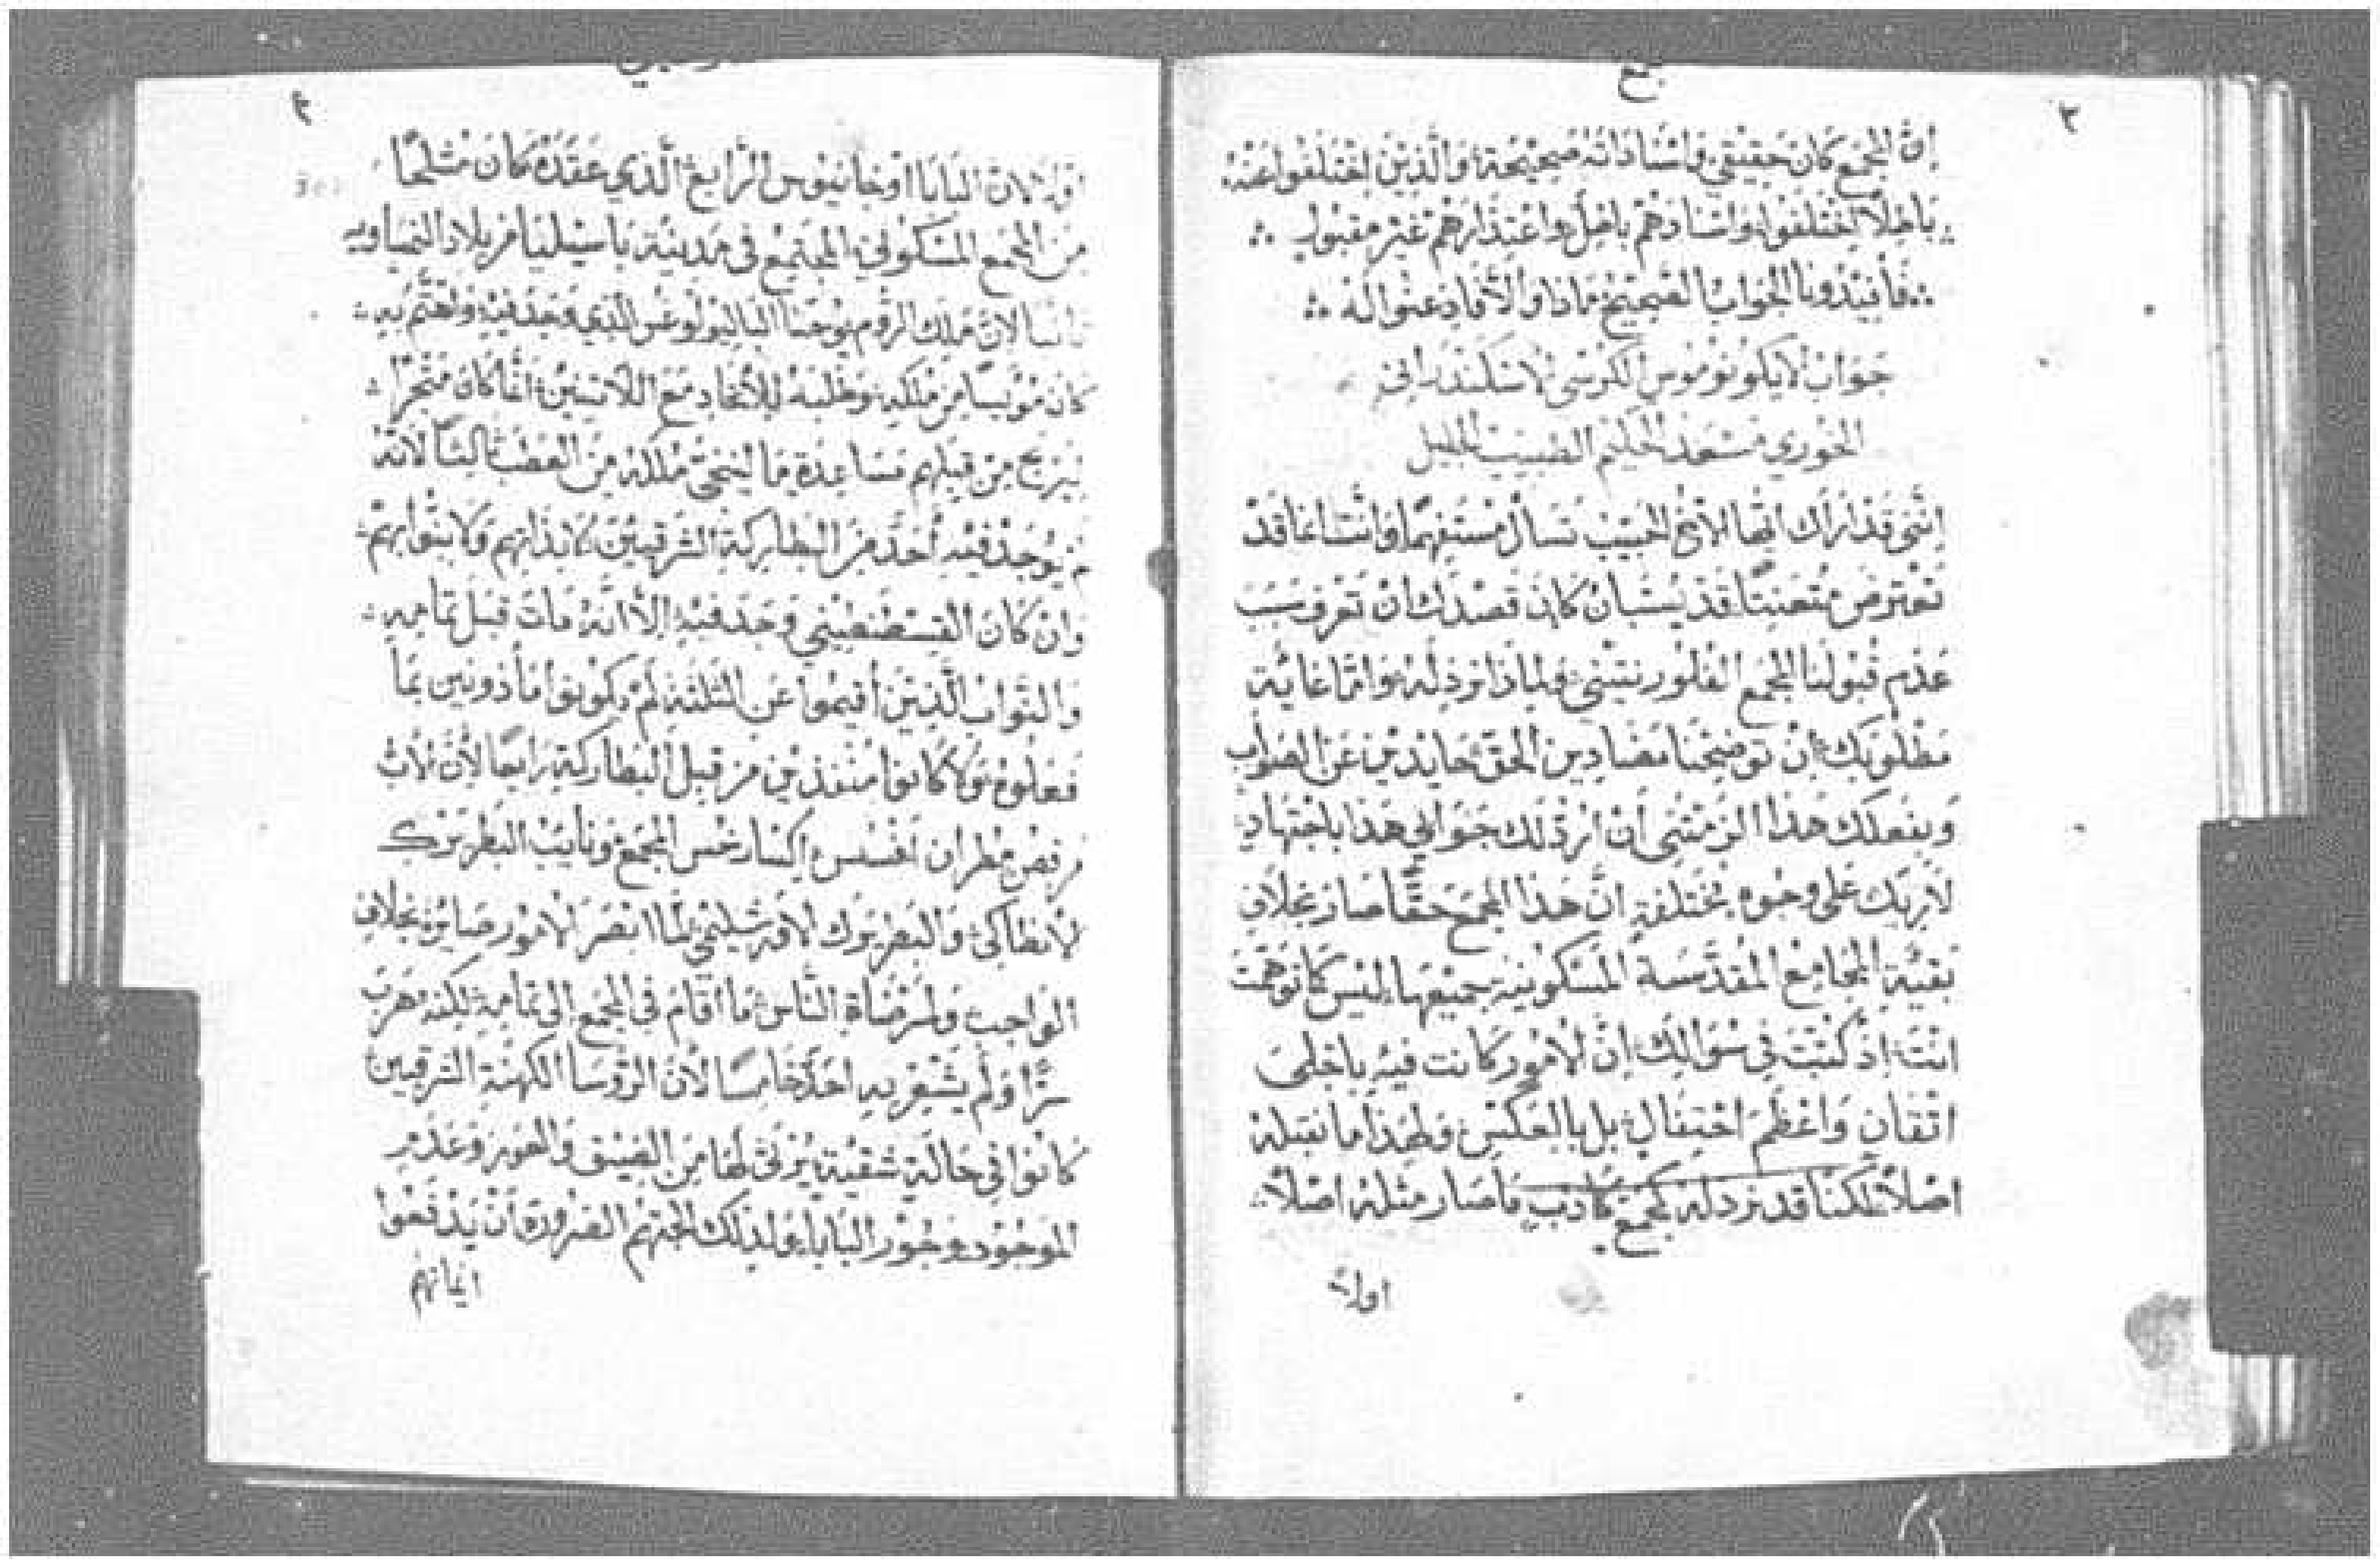 مجمع
٣
إن المجمع كان حقيقي واسناداته صحيحة والذين اختلفوا عنه
باطلاً اختلفوا واسنادهم باطل واعتذارهم غير مقبول
فأفيدونا الجواب الصحيح ماذا والأفاذعنوا له
جواب الايكونوموس الكرسي الاسكندراني
الخوري مسعد الحكيم الطبيب الجليل
إنني قد أراك ايها الأخ الحبيب تسأل مستفهماً وانت انما قد
تعترض متعنتاً قد يستبان كان قصدك ان تعرف سبب
عدم قبولنا المجمع الفلورنتيني ولماذا نرذله واما غاية
مطلوبك ان توضحنا مضادين الحق حايدين عن الصواب
وبفعلك هذا الزمتني أن ارد لك جوابي هذا باجتهاد
لأريك على وجوه مختلفة ان هذا المجمع حقاً صار بخلاف
بقية المجامع المقدسة المسكونية جميعها ليس كما توهمت
انت اذ كتبت في سوالك إن الامور كانت فيه باجلى
اتقان واعظم احتفال بل بالعكس ولهذا ما نقبله
اصلاً لكننا قد نرذله كمجمع كاذب ماصار مثله اصلاً
اولاً
٤
اولاً لان البابا اوجانيوس الرابع الذي عقده كان مشلحاً
من المجمع المسكوني المجتمع في مدينة باسيليا من بلاد النمساويه
ثانيا لان ملك الروم يوحنا الباليولوغس الذي وجد فيه واهتم به
كان مويسا من ملكه وطلبه للاتحاد مع اللاتينيين انما كان متجراً
ليربح من قبلهم مساعدة ما لينجي ملكه من العطب ثالثا لانه
لم يوجد فيه أحد من البطاركة الشرقيين لا بذاتهم ولا بنوابهم
وان كان القسطنطيني وجد فيه الا انه مات قبل تمامه
والنواب الذين أقيموا عن الثلثة لم يكونوا مأذونين بما
فعلوه ولا كانوا منفذين من قبل البطاركة رابعا لأن ثلاث
مرقص مطران افسس اكسارخس المجمع ونايب البطريرك
الانطاكي والبطريرك الاورشليمي لما ابصر الامور صايرة بخلاف
الواجب ولمرضاة الناس ما اقام في المجمع الى تمامه لكنه هرب
سرًّا ولم يشعر به احد خامسا لأن الروسا الكهنة الشرقيين
كانوا في حالة شقية يرثى لها من الضيق والعوز وعدم
الموجود وجور البابا ولذلك الجتهم الضرورة أن يدفعوا
ايمانهم